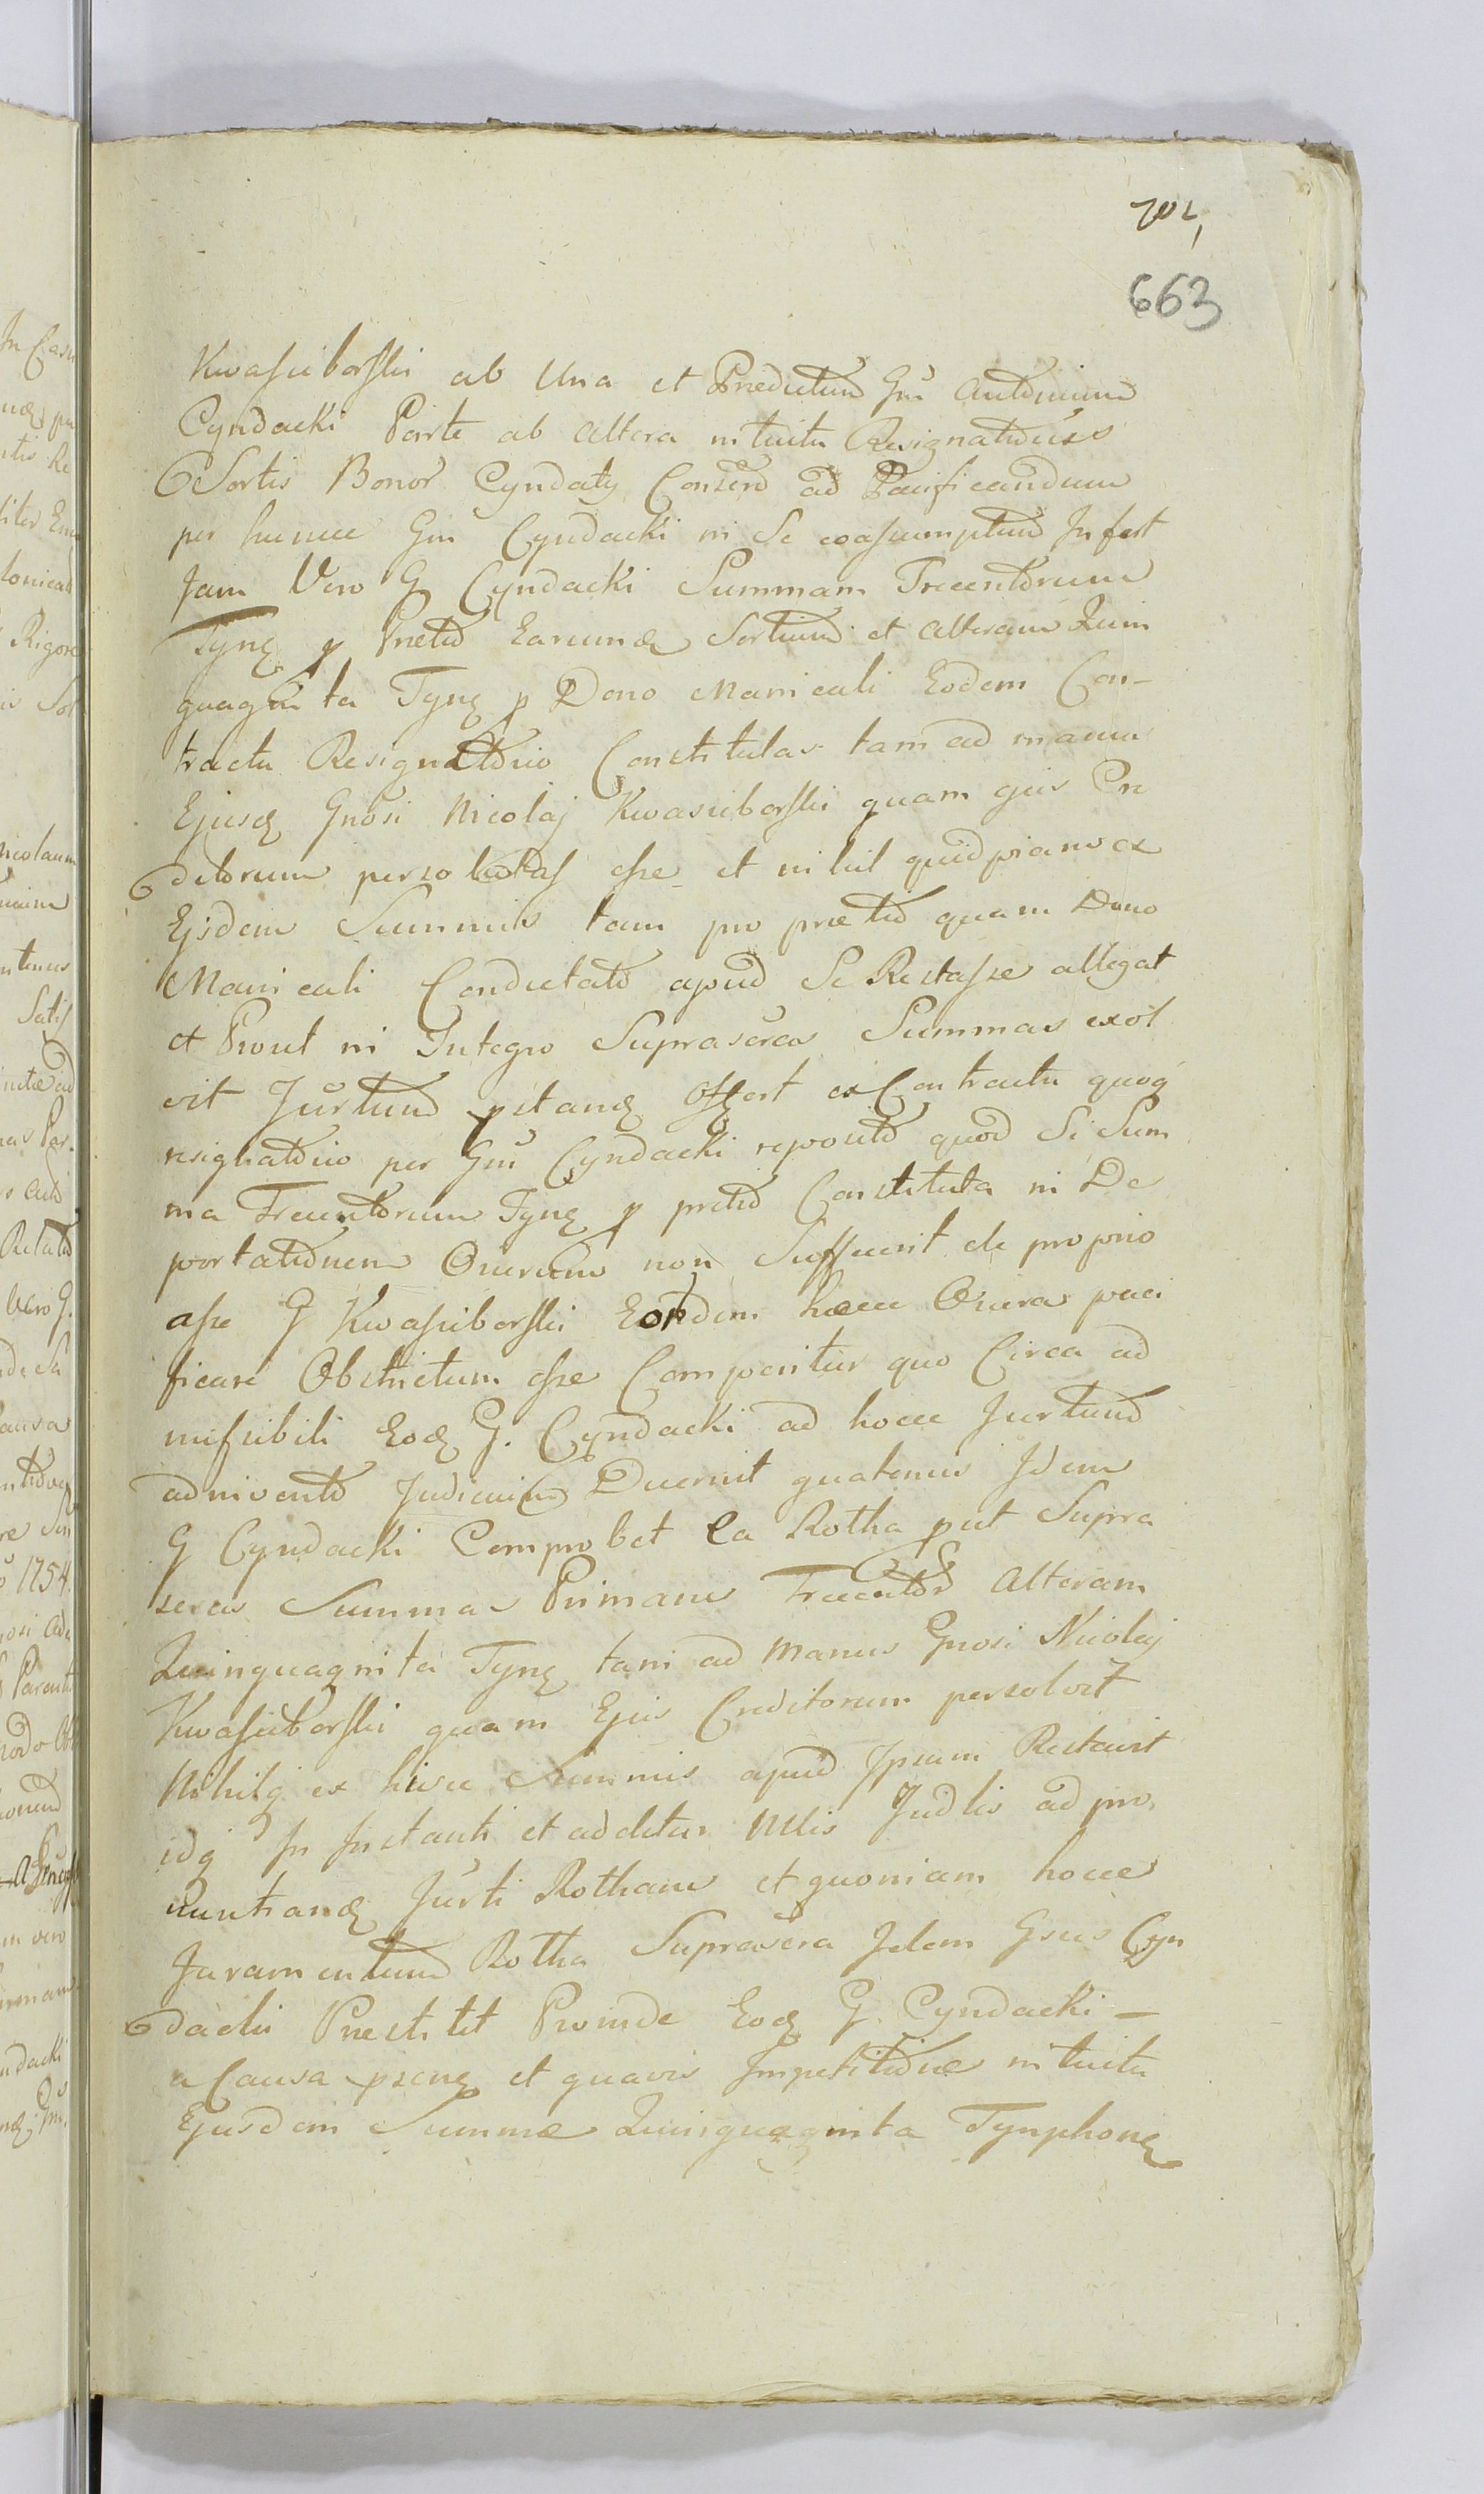 702,
663
Kwasieborski ab Una et Prædictum Gnm Antonium
Cyndacki Parte ab altera intuitu Resignationis
Sortis Bonor Cyndaty Conscrõ ad Pacificandum
per hunce Gnm Cyndacki in Se coassumptum Infert
Jam Vero G Cyndacki Summam Trecentorum
Tynq p Prætio Earumq Sortium et alteram Quin
quaginta Tynq p Dono Manicali Eodem Con-
tractu Resignatorio Constitutas tam ad manus
Ejusq Gnosi Nicolaj Kwasieborski quam ejus Cre
ditorum persolutas esse et nihil quidpiam ex
Ejsdem Summis tam pro prætio quam Dono
Manicali Condictato apud Se Restasse allegat
et Prout in Integro Suprascras Summas exol
vit Jurtum pstanq offert ex Contractu quoq
resignatorio per Gnm Cyndacki reposito quod Si Sum
ma Trecentorum Tynq p pretio Constituta in De
portationem Onerum non Suffecerit de proprio
asse G Kwasieborski Eodem hæce Onera paci
ficare Obstrictum esse Comperitur quo Circa ad
missibili Eoq G. Cyndacki ad hocce Jurtum
adinvento Judicium Decernit quatenus Idem
G Cyndacki Comprobet Ea Rotha put Supra
scras Summas Primam Trecentor Alteram
Quinquaginta Tynq tam ad Manus Gnosi Nicolaj
Kwasieborski quam Ejus Creditorum persolvit
Nihilq ex hisce Summis apud Ipsum Restavit
idq In Instanti et additur Mlis Judlis ad pro
nuntianq Jurti Rotham et quoniam hocce
Juramentum Rotha Suprascra Idem Gsus Cyn
dacki Præstitit Proinde Eoq G. Cyndacki –
a Causa psenq et quavis Impetitione intuitu
Ejusdem Summæ Quinquaginta Tynphonq